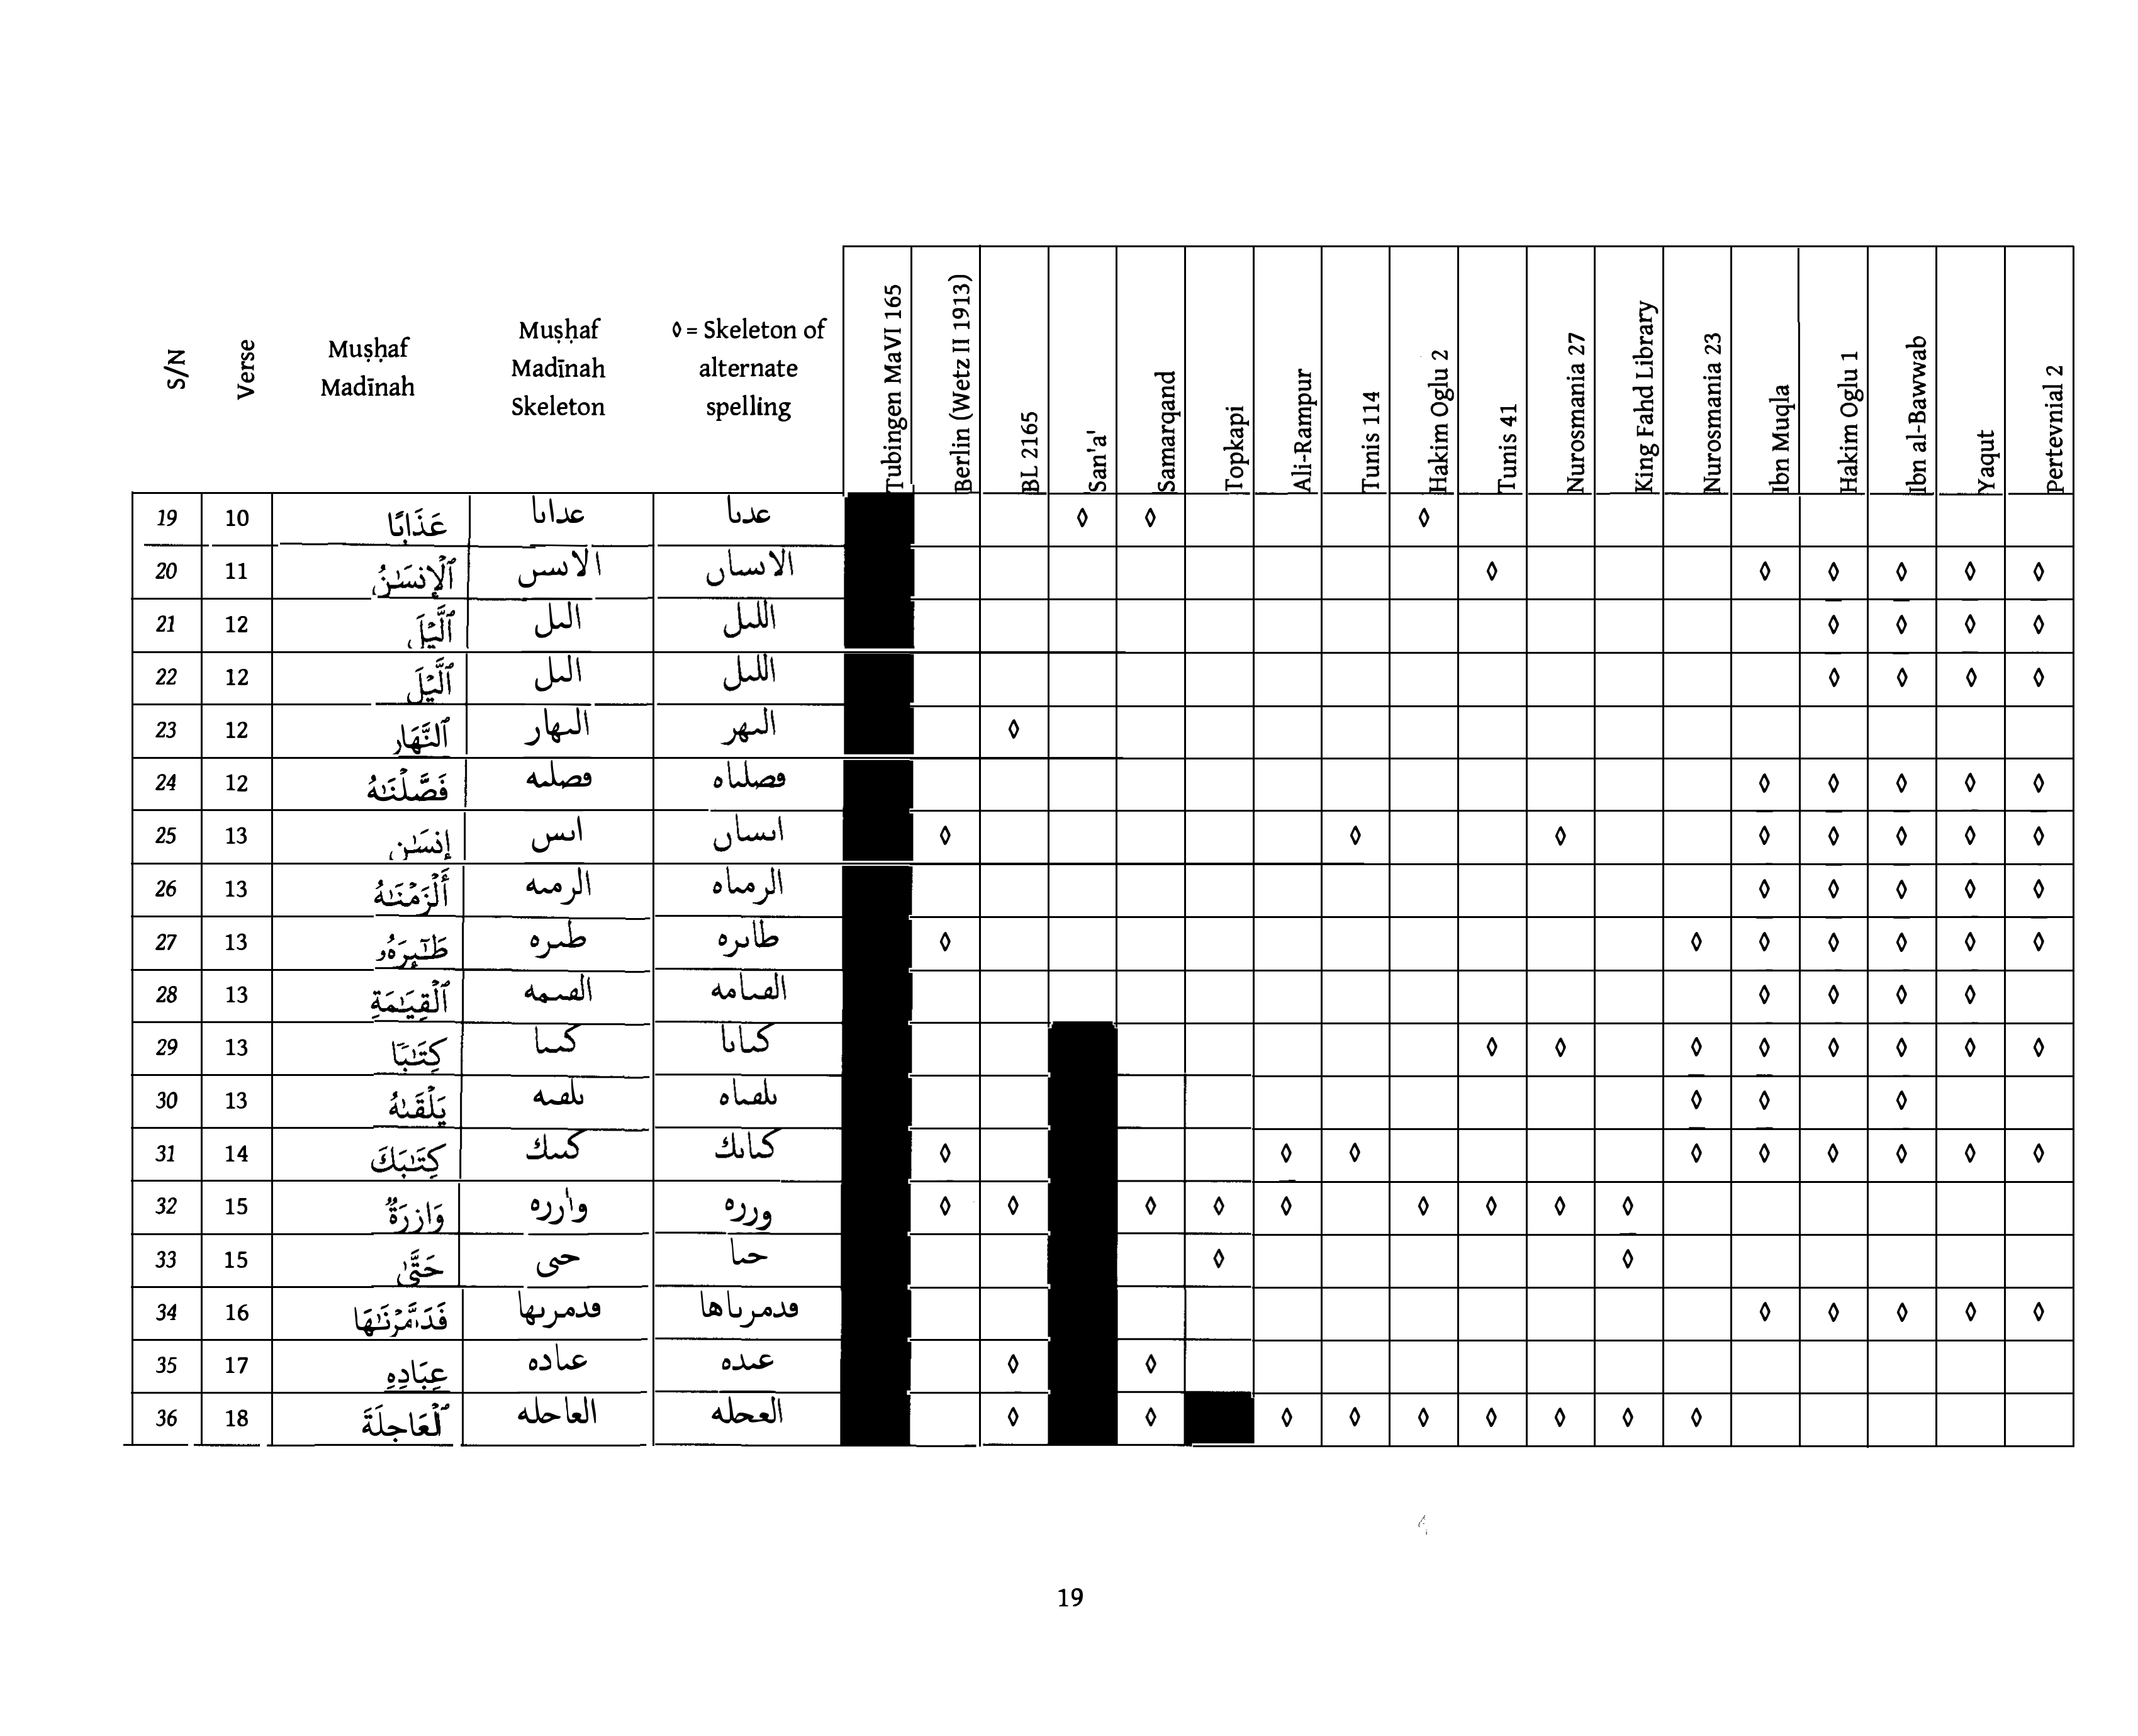 S/N Verse Muṣḥaf Madīnah Muṣḥaf Madīnah Skeleton ◊ = Skeleton of alternate spelling Tubingen MaVI 165 Berlin (Wetz II 1913) BL 2165 San'a' Samarqand Topkapi Ali-Rampur Tunis 114 Hakim Oglu 2 Tunis 41 Nurosmania 27 King Fahd Library Nurosmania 23 Ibn Muqla Hakim Oglu 1 Ibn al-Bawwab Yaqut Pertevnial 2
19 10 عَذَابًا عداٮا عدٮا ◊ ◊ ◊
20 11 ٱلْإِنسَـٰنُ الاٮسں الاٮساں ◊ ◊ ◊ ◊ ◊ ◊
21 12 ٱلَّيْلَ الٮل اللٮل ◊ ◊ ◊ ◊
22 12 ٱلَّيْلِ الٮل اللٮل ◊ ◊ ◊ ◊
23 12 ٱلنَّهَارِ الٮهار الٮهر ◊
24 12 فَصَّلْنَـٰهُ فصلٮه فصلٮاه ◊ ◊ ◊ ◊ ◊
25 13 إِنسَـٰنٍ اٮسں اٮساں ◊ ◊ ◊ ◊ ◊ ◊ ◊ ◊
26 13 أَلْزَمْنَـٰهُ الرمٮه الرمٮاه ◊ ◊ ◊ ◊ ◊
27 13 طَـٰٓئِرَهُۥ طٮره طاٮره ◊ ◊ ◊ ◊ ◊ ◊ ◊
28 13 ٱلْقِيَـٰمَةِ الڡٮمه الڡٮامه ◊ ◊ ◊ ◊
29 13 كِتَـٰبًا كٮٮا كٮاٮا ◊ ◊ ◊ ◊ ◊ ◊ ◊ ◊
30 13 يَلْقَىٰهُ ٮلڡٮه ٮلڡٮاه ◊ ◊ ◊
31 14 كِتَـٰبَكَ كٮٮك كٮاٮك ◊ ◊ ◊ ◊ ◊ ◊ ◊ ◊ ◊
32 15 وَازِرَةٌ وارره ورره ◊ ◊ ◊ ◊ ◊ ◊ ◊ ◊ ◊
33 15 حَتَّىٰ حٮى حٮا ◊ ◊
34 16 فَدَمَّرْنَـٰهَا ڡدمرٮها ڡدمرٮاها ◊ ◊ ◊ ◊ ◊
35 17 عِبَادِهِ عٮاده عٮده ◊ ◊
36 18 ٱلْعَاجِلَةَ العاحله العحله ◊ ◊ ◊ ◊ ◊ ◊ ◊ ◊ ◊
19